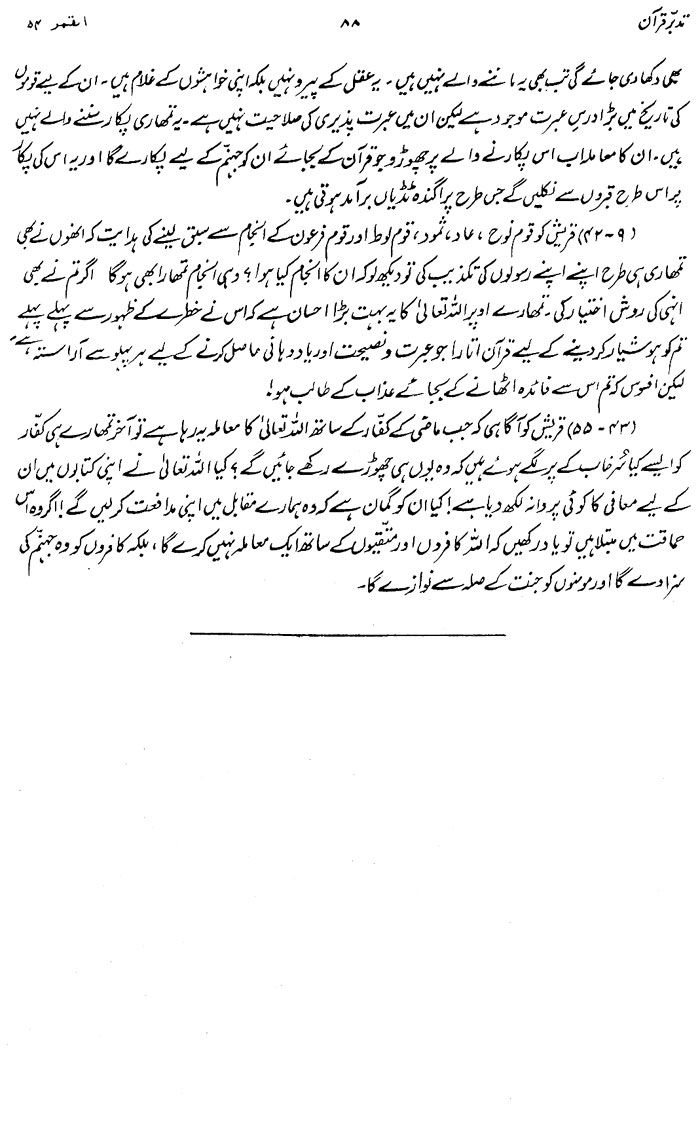 تدبّر قرآن ۸۸ القمر ۵۴
بھی دکھا دی جائے گی تب بھی یہ ماننے والے نہیں ہیں۔ یہ عقل کے پیرو نہیں بلکہ اپنی خواہشوں کے غلام ہیں۔ ان کے لیے قوموں
کی تاریخ میں بڑا درسِ عبرت موجود ہے لیکن ان میں عبرت پذیری کی صلاحیت نہیں ہے۔ یہ تمھاری پکار سننے والے نہیں
ہیں۔ ان کا معاملہ اب اس پکارنے والے پر چھوڑو جو قرآن کے بجائے ان کو جہنّم کے لیے پکارے گا اور یہ اس کی پکار
پر اس طرح قبروں سے نکلیں گے جس طرح پراگندہ ٹڈیاں برآمد ہوتی ہیں۔
(۹-۴۲) قریش کو قوم نوح، عاد، ثمود، قوم لوط اور قوم فرعون کے انجام سے سبق لینے کی ہدایت کہ انھوں نے بھی
تمھاری ہی طرح اپنے اپنے رسولوں کی تکذیب کی تو دیکھ لو کہ ان کا انجام کیا ہوا؟ وہی انجام تمھارا بھی ہوگا اگر تم نے بھی
انہی کی روش اختیار کی۔ تمھارے اوپر اللہ تعالیٰ کا یہ بہت بڑا احسان ہے کہ اس نے خطرے کے ظہور سے پہلے پہلے
تم کو ہوشیار کر دینے کے لیے قرآن اتارا جو عبرت و نصیحت اور یاددہانی حاصل کرنے کے لیے ہر پہلو سے آراستہ ہے
لیکن افسوس کہ تم اس سے فائدہ اٹھانے کے بجائے عذاب کے طالب ہو!
(۴۳-۵۵) قریش کو آگاہی کہ جب ماضی کے کفّار کے ساتھ اللہ تعالیٰ کا معاملہ یہ رہا ہے تو آخر تمھارے ہی کفار
کو ایسے کیا سُرخاب کے پر لگے ہوئے ہیں کہ وہ یوں ہی چھوڑے رکھے جائیں گے؟ کیا اللہ تعالیٰ نے اپنی کتابوں میں ان
کے لیے معافی کا کوئی پروانہ لکھ دیا ہے! کیا ان کو گمان ہے کہ وہ ہمارے مقابل میں اپنی مدافعت کر لیں گے! اگر وہ اس
حماقت میں مبتلا ہیں تو یاد رکھیں کہ اللہ کافروں اور متّقیوں کے ساتھ ایک معاملہ نہیں کرے گا، بلکہ کافروں کو وہ جہنّم کی
سزا دے گا اور مومنوں کو جنت کے صلہ سے نوازے گا۔